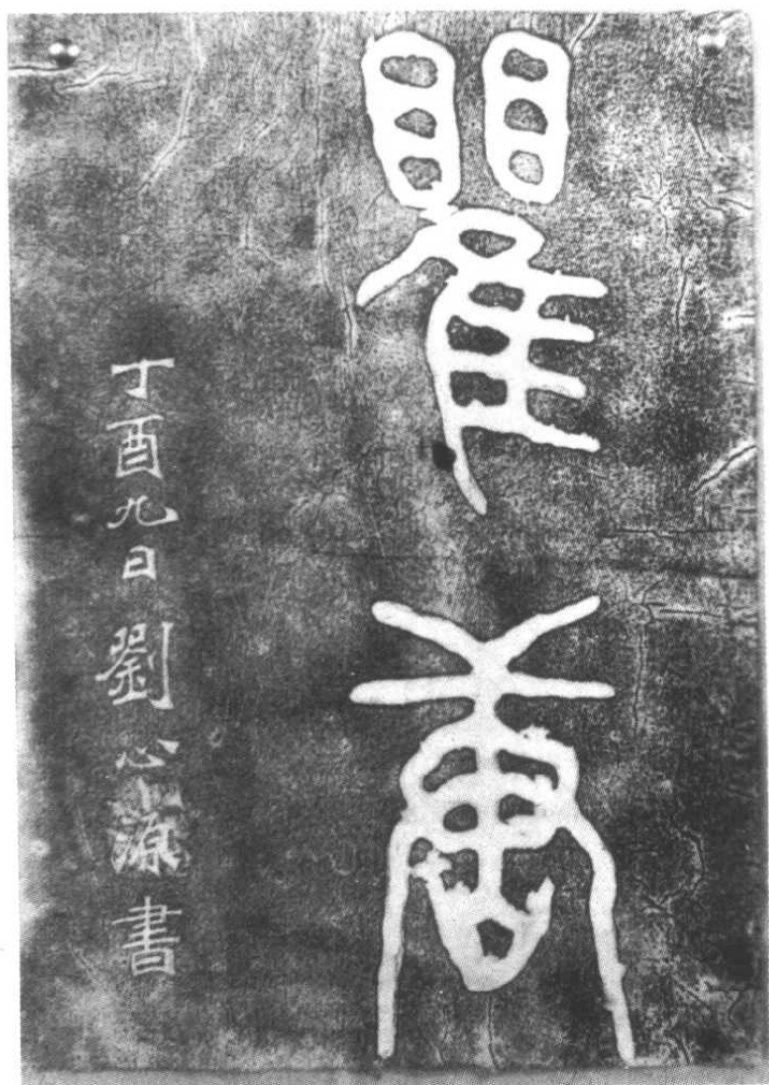 瞿唐
丁酉九日劉心源書